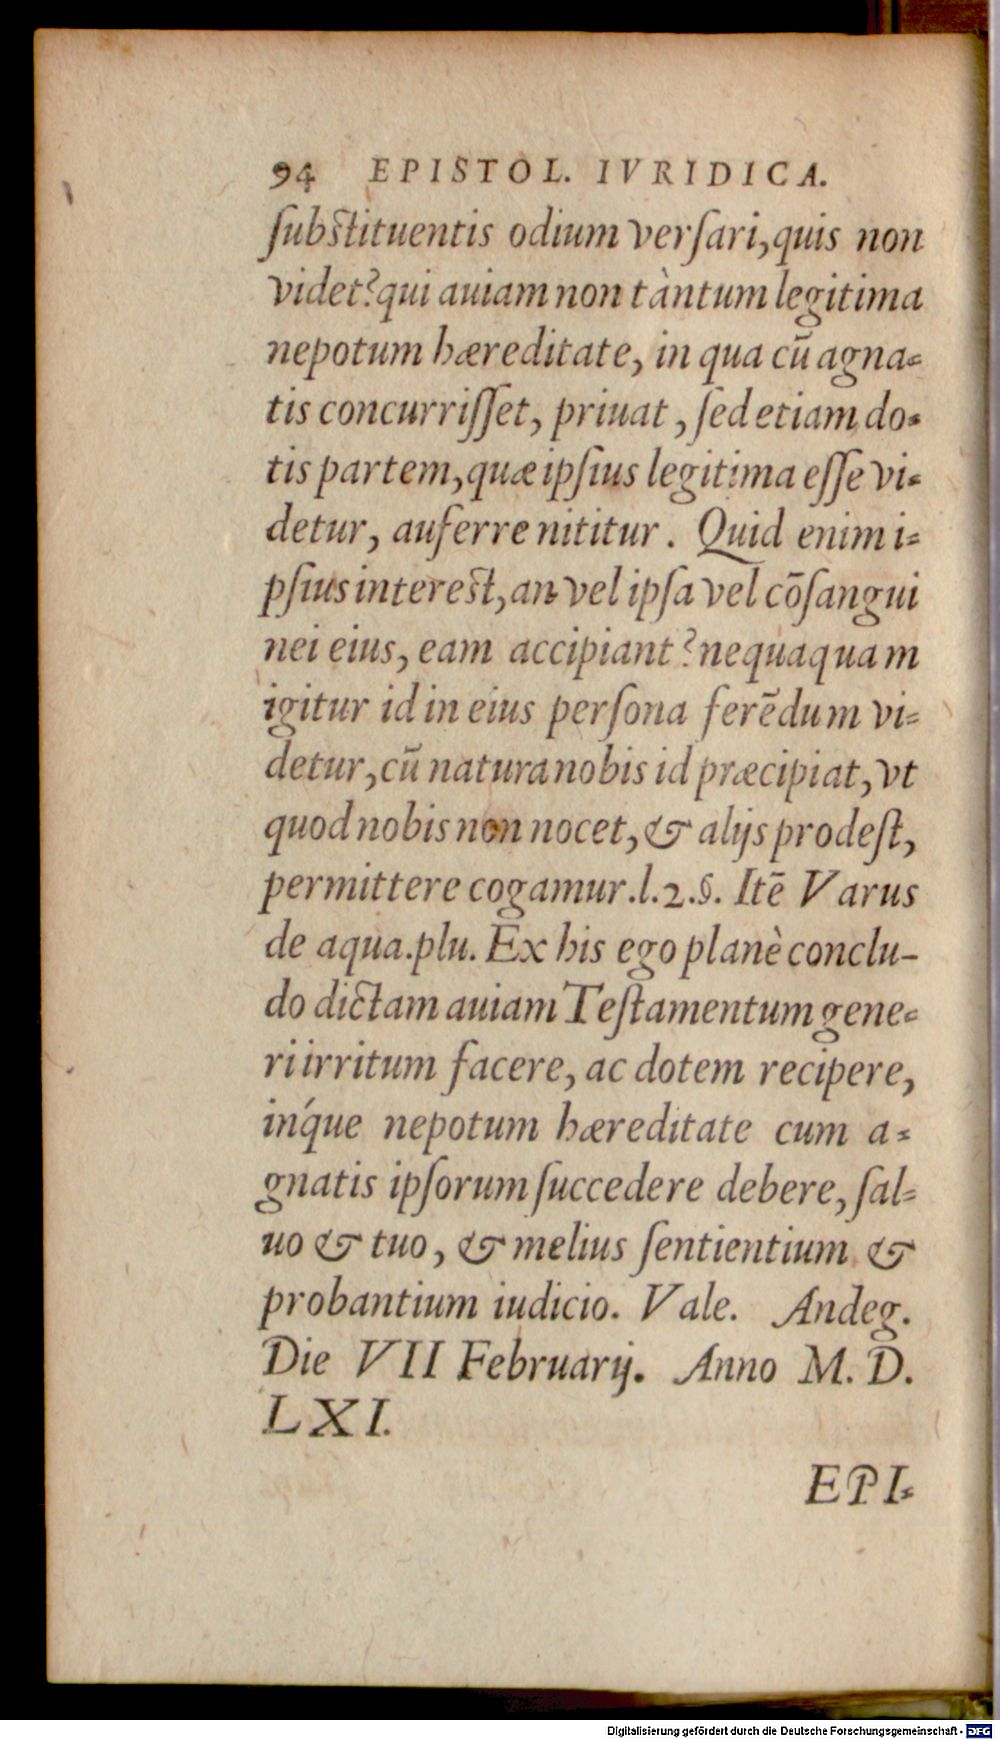 94 EPISTOL. IVRIDICA.
ſubſtituentis odium verſari, quis non
videt? qui auiam non tàntum legitima
nepotum hæreditate, in qua cū agna-
tis concurriſſet, priuat, ſed etiam do-
tis partem, quæ ipſius legitima eſſe vi-
detur, auferre nititur. Quid enim i-
pſius intereſt, an vel ipſa vel cōſangui
nei eius, eam accipiant? nequaquam
igitur id in eius perſona ferēdum vi-
detur, cū natura nobis id præcipiat, vt
quod nobis non nocet, & alijs prodeſt,
permittere cogamur. l. 2. §. Itē Varus
de aqua. plu. Ex his ego planè conclu-
do dictam auiam Teſtamentum gene-
ri irritum facere, ac dotem recipere,
inq́ue nepotum hæreditate cum a-
gnatis ipſorum ſuccedere debere, ſal-
uo & tuo, & melius ſentientium &
probantium iudicio. Vale. Andeg.
Die VII Februarij. Anno M. D.
LXI.
EPI-
Digitalisierung gefördert durch die Deutsche Forschungsgemeinschaft - DFG